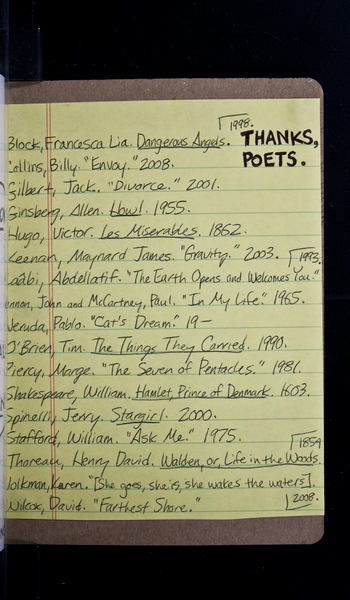 1998.
Block, Francesca Lia. Dangerous Angels.
THANKS,
POETS.
Collins, Billy. "Envoy." 2008.
Gilbert, Jack. "Divorce." 2001.
Ginsberg, Allen. Howl. 1955.
Hugo, Victor. Les Miserables. 1862.
Keenan, Maynard James. "Gravity." 2003.
1993.
Laâbi, Abdellatif. "The Earth Opens and Welcomes You."
ennon, John and McCartney, Paul. "In My Life." 1965.
Neruda, Pablo. "Cat's Dream." 19—
O'Brien, Tim. The Things They Carried. 1990.
Piercy, Marge. "The Seven of Pentacles." 1981.
Shakespeare, William. Hamlet, Prince of Denmark. 1603.
Spinelli, Jerry. Stargirl. 2000.
Stafford, William. "Ask Me." 1975.
1854
Thoreau, Henry David. Walden, or, Life in the Woods.
Volkman, Karen. "[She goes, she is, she wakes the waters].
2008.
Wilcox, David. "Farthest Shore."